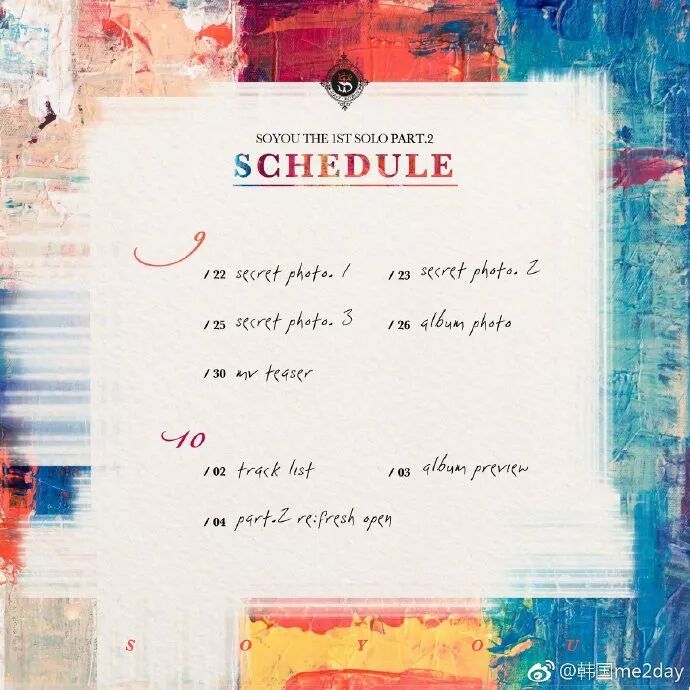 SOYOU THE 1ST SOLO PART.2
SCHEDULE
9
/ 22 secret photo. 1 / 23 secret photo. 2
/ 25 secret photo. 3 / 26 album photo
/ 30 mv teaser
10
/ 02 track list / 03 album preview
/ 04 part.2 re:fresh open
S O Y O U
@韩国me2day